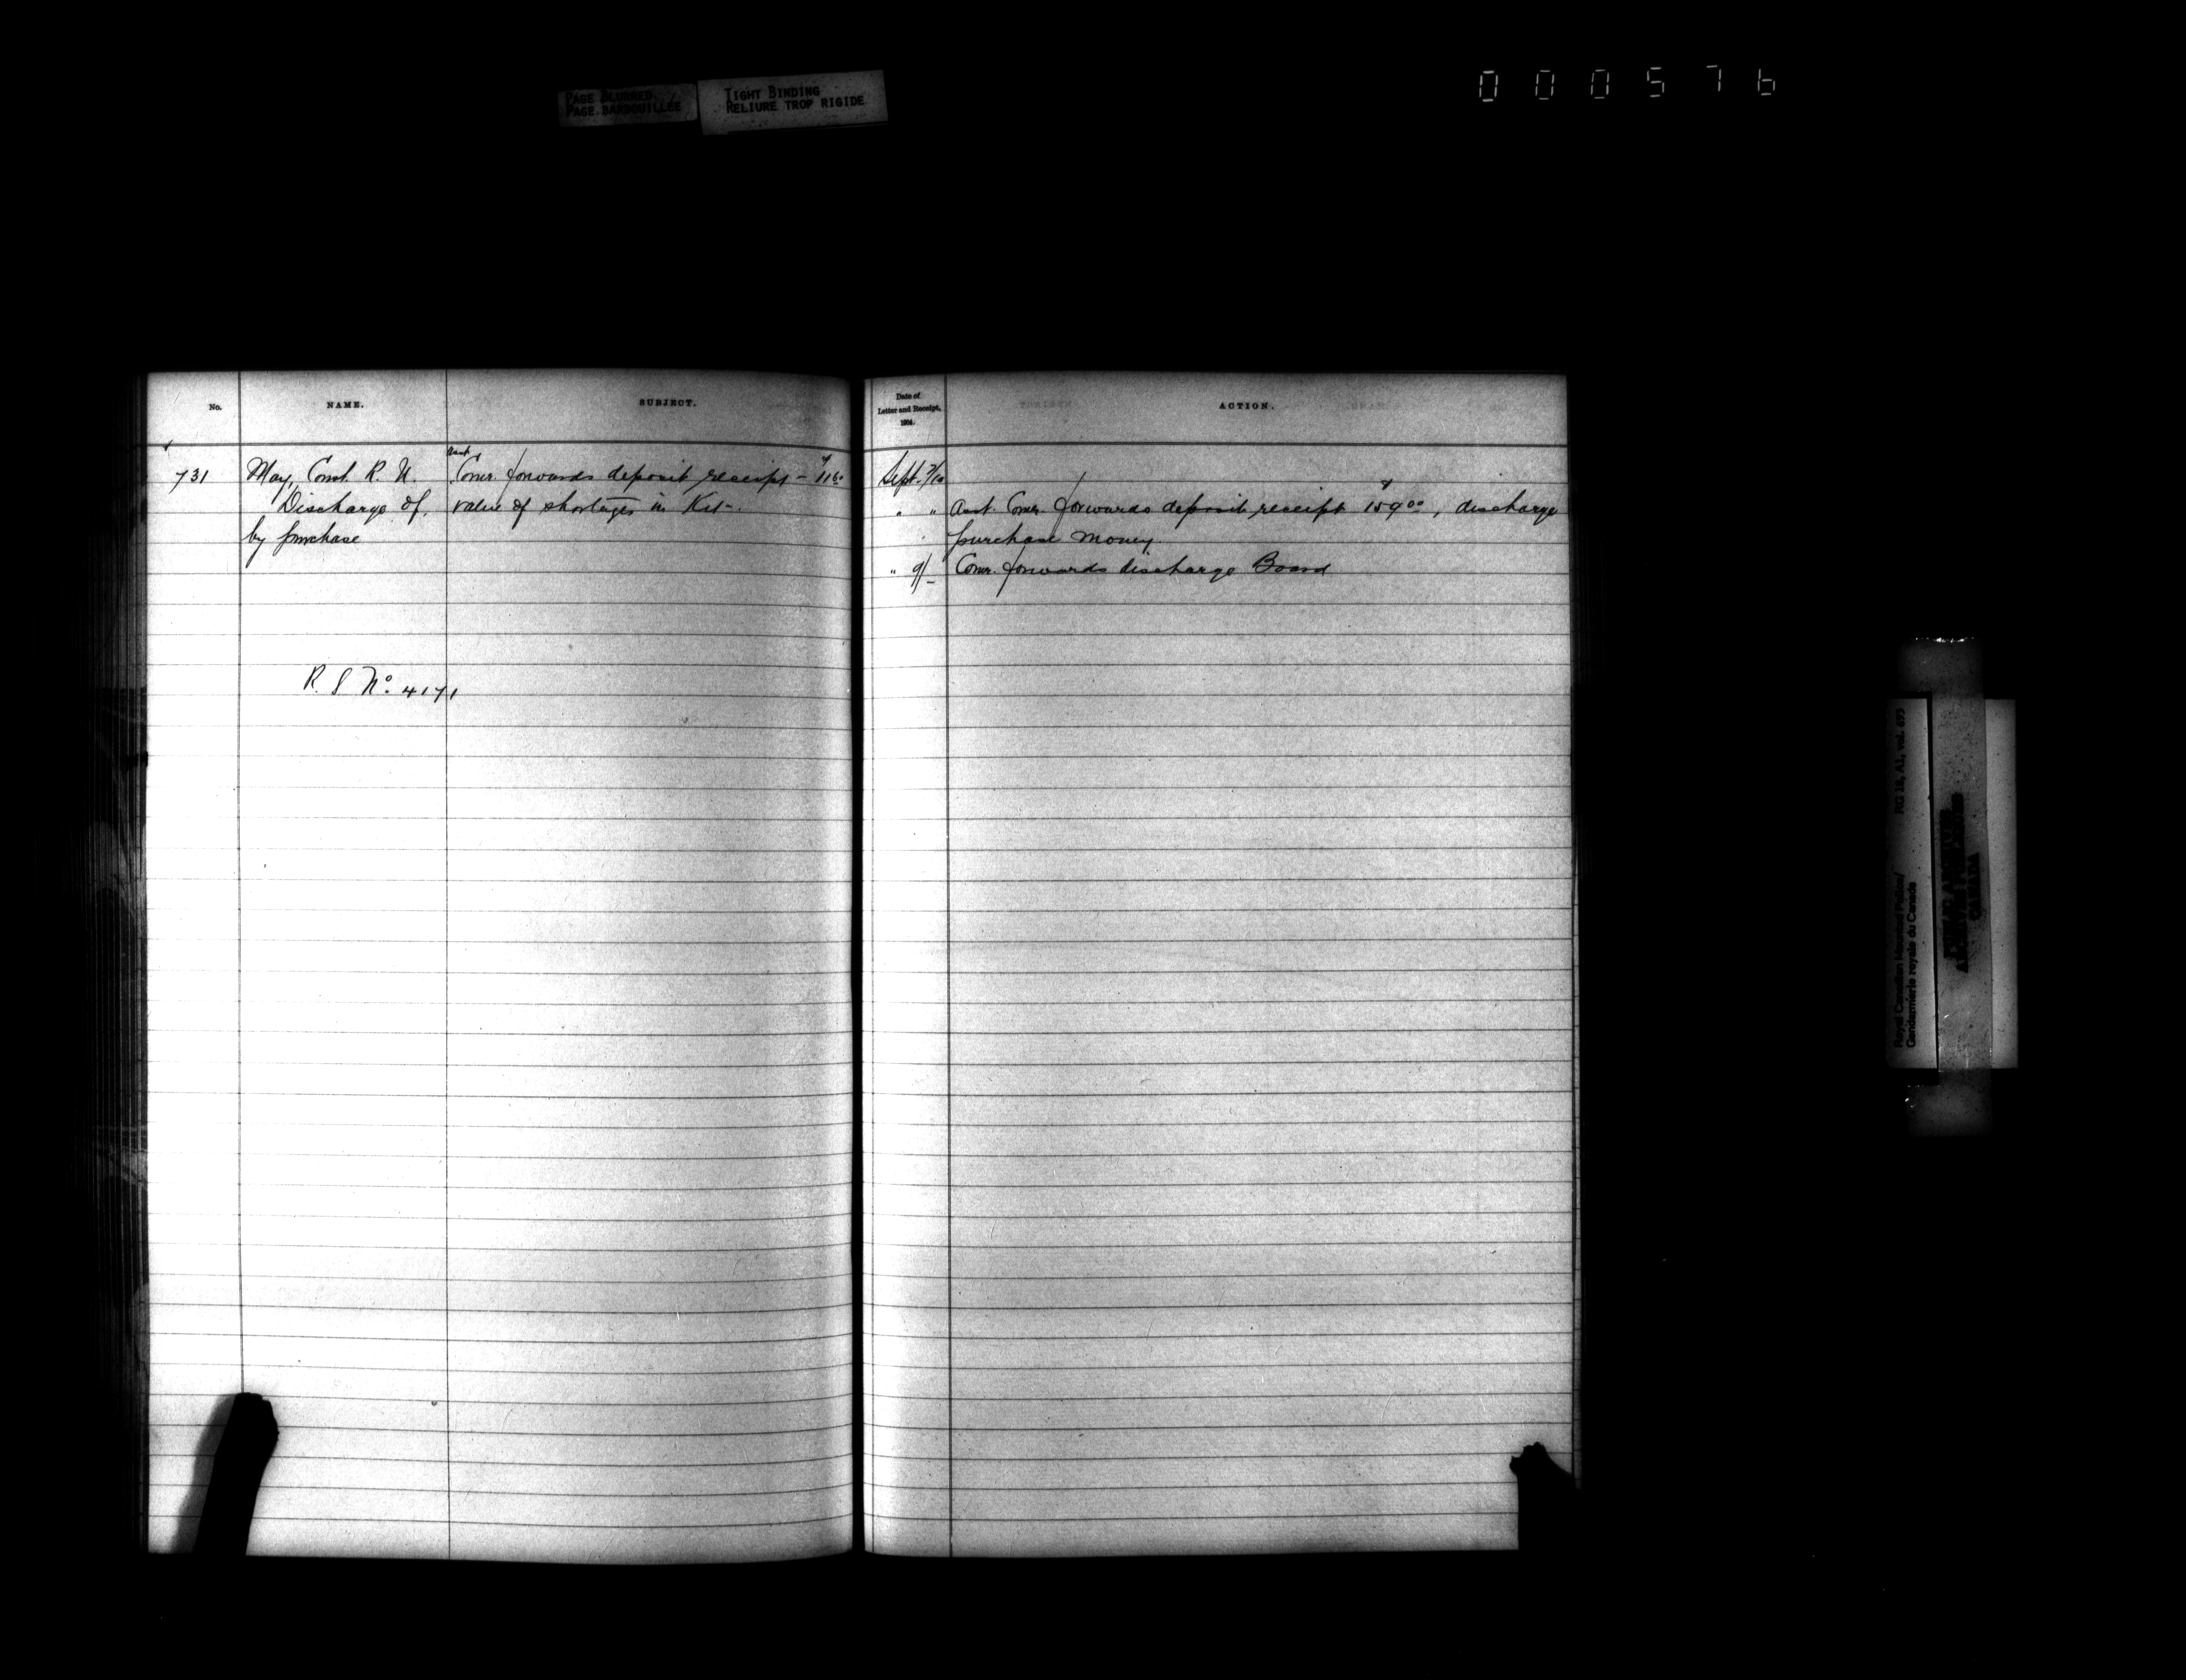 PAGE BLURRED
PAGE BARBOUILLÉE
TIGHT BINDING
RELIURE TROP RIGIDE
000576
No.
NAME.
SUBJECT.
731
May, Const. R. U.
Discharge of,
by purchase
Asst
Comr. forwards deposit receipt – $1160
value of shortages in Kit –.
R. S No. 4171
Date of
Letter and Receipt,
1904.
ACTION.
Sept. 7/10
" " Asst. Comr. forwards deposit receipt $159 00, discharge
purchase money.
" 9/_ Comr. forwards discharge Board
Royal Canadian Mounted Police/
Gendarmerie royale du Canada
RG 18, A1, vol. 693
PUBLIC ARCHIVES
ARCHIVES PUBLIQUES
CANADA